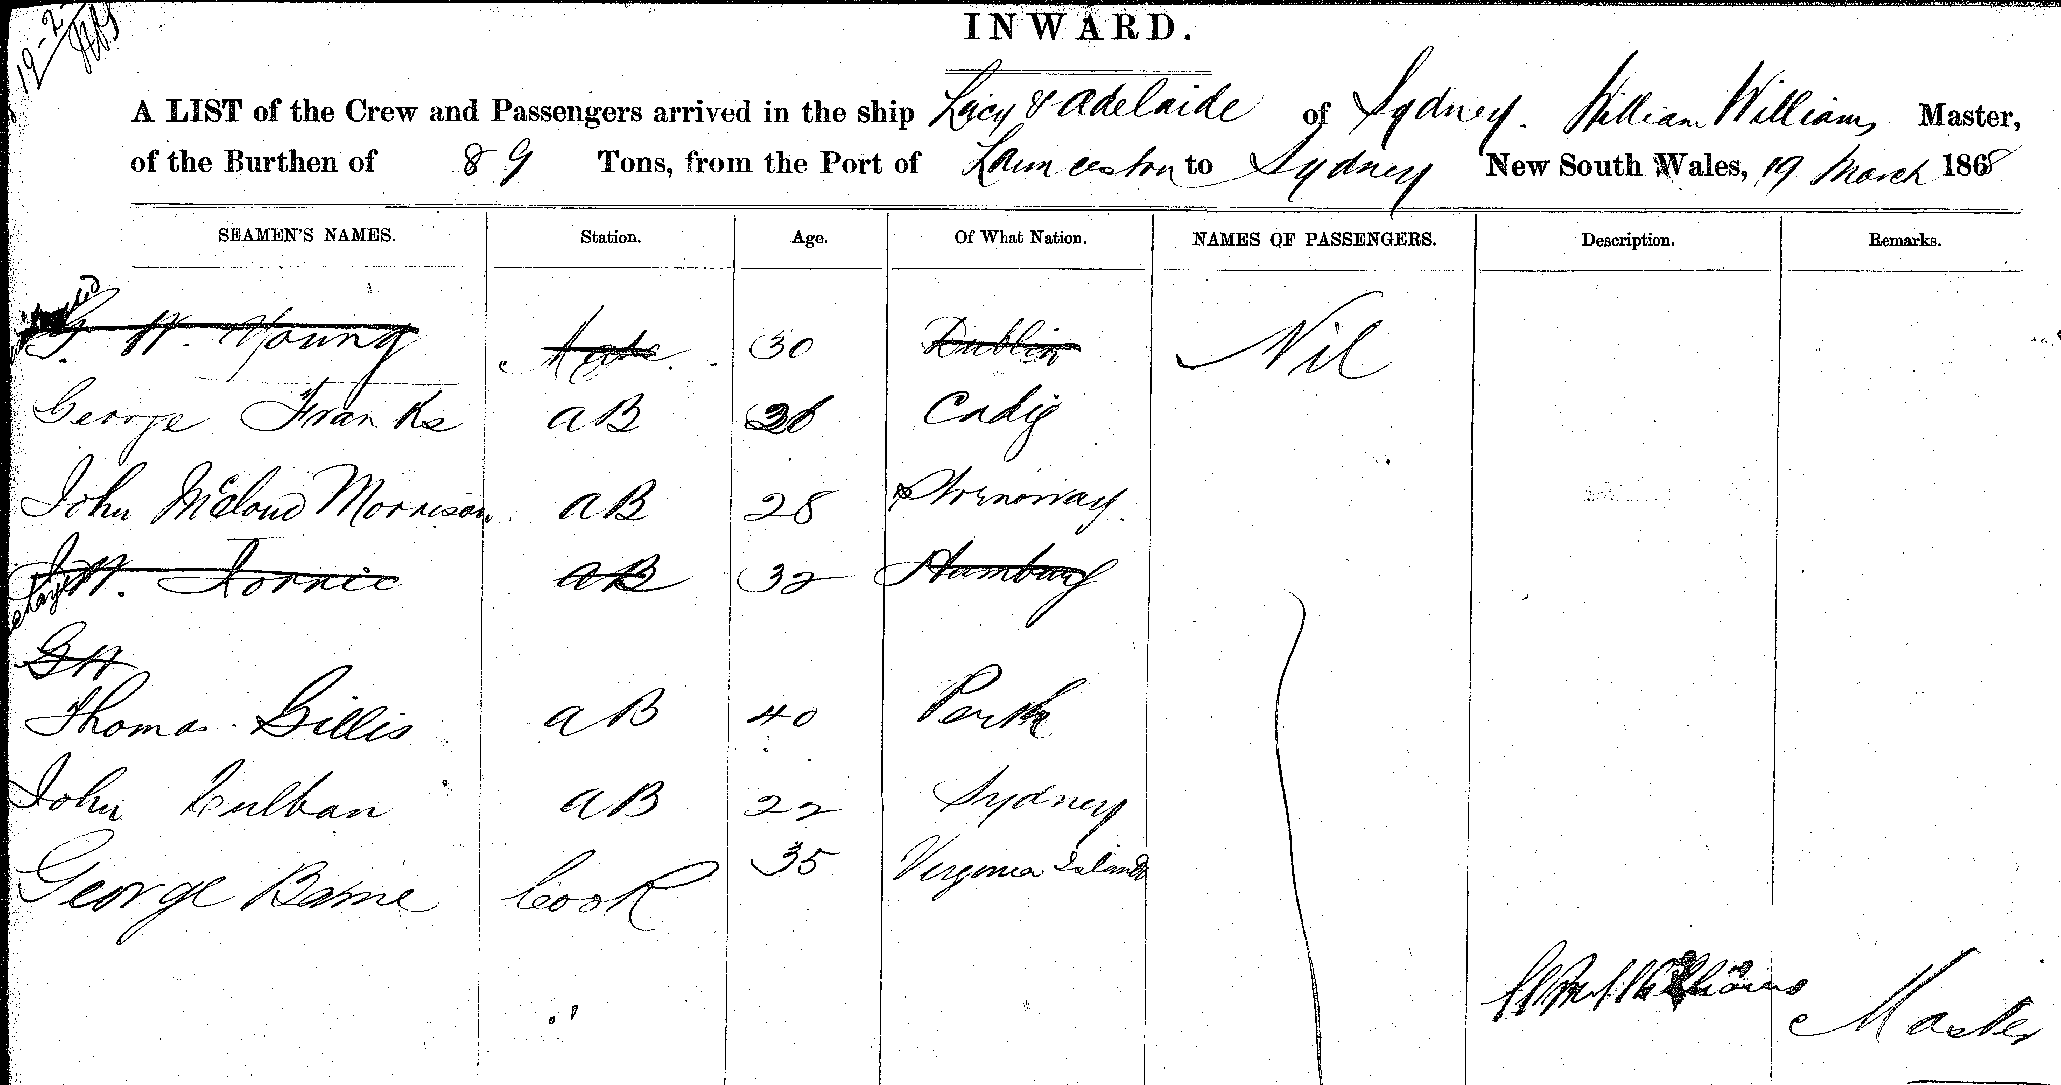 INWARD.
A LIST of the Crew and Passengers arrived in the ship Lucy & Adelaide of Sydney. William Williams Master,
of the Burthen of 89 Tons, from the Port of Launceston to Sydney New South Wales, 19 March 1868
SEAMEN'S NAMES. Station. Age. Of What Nation. NAMES OF PASSENGERS. Description. Remarks.
W. Young Mate 30 Dublin Nil
George Franks AB Cadiz
John McLoud Morrison AB 28 Stornoway
W. AB 32 Hamburg
GW
Thomas Gillis AB 40 Perth
John AB 22 Sydney
George Barne Cook 35 Virginia Islands
Williams Master